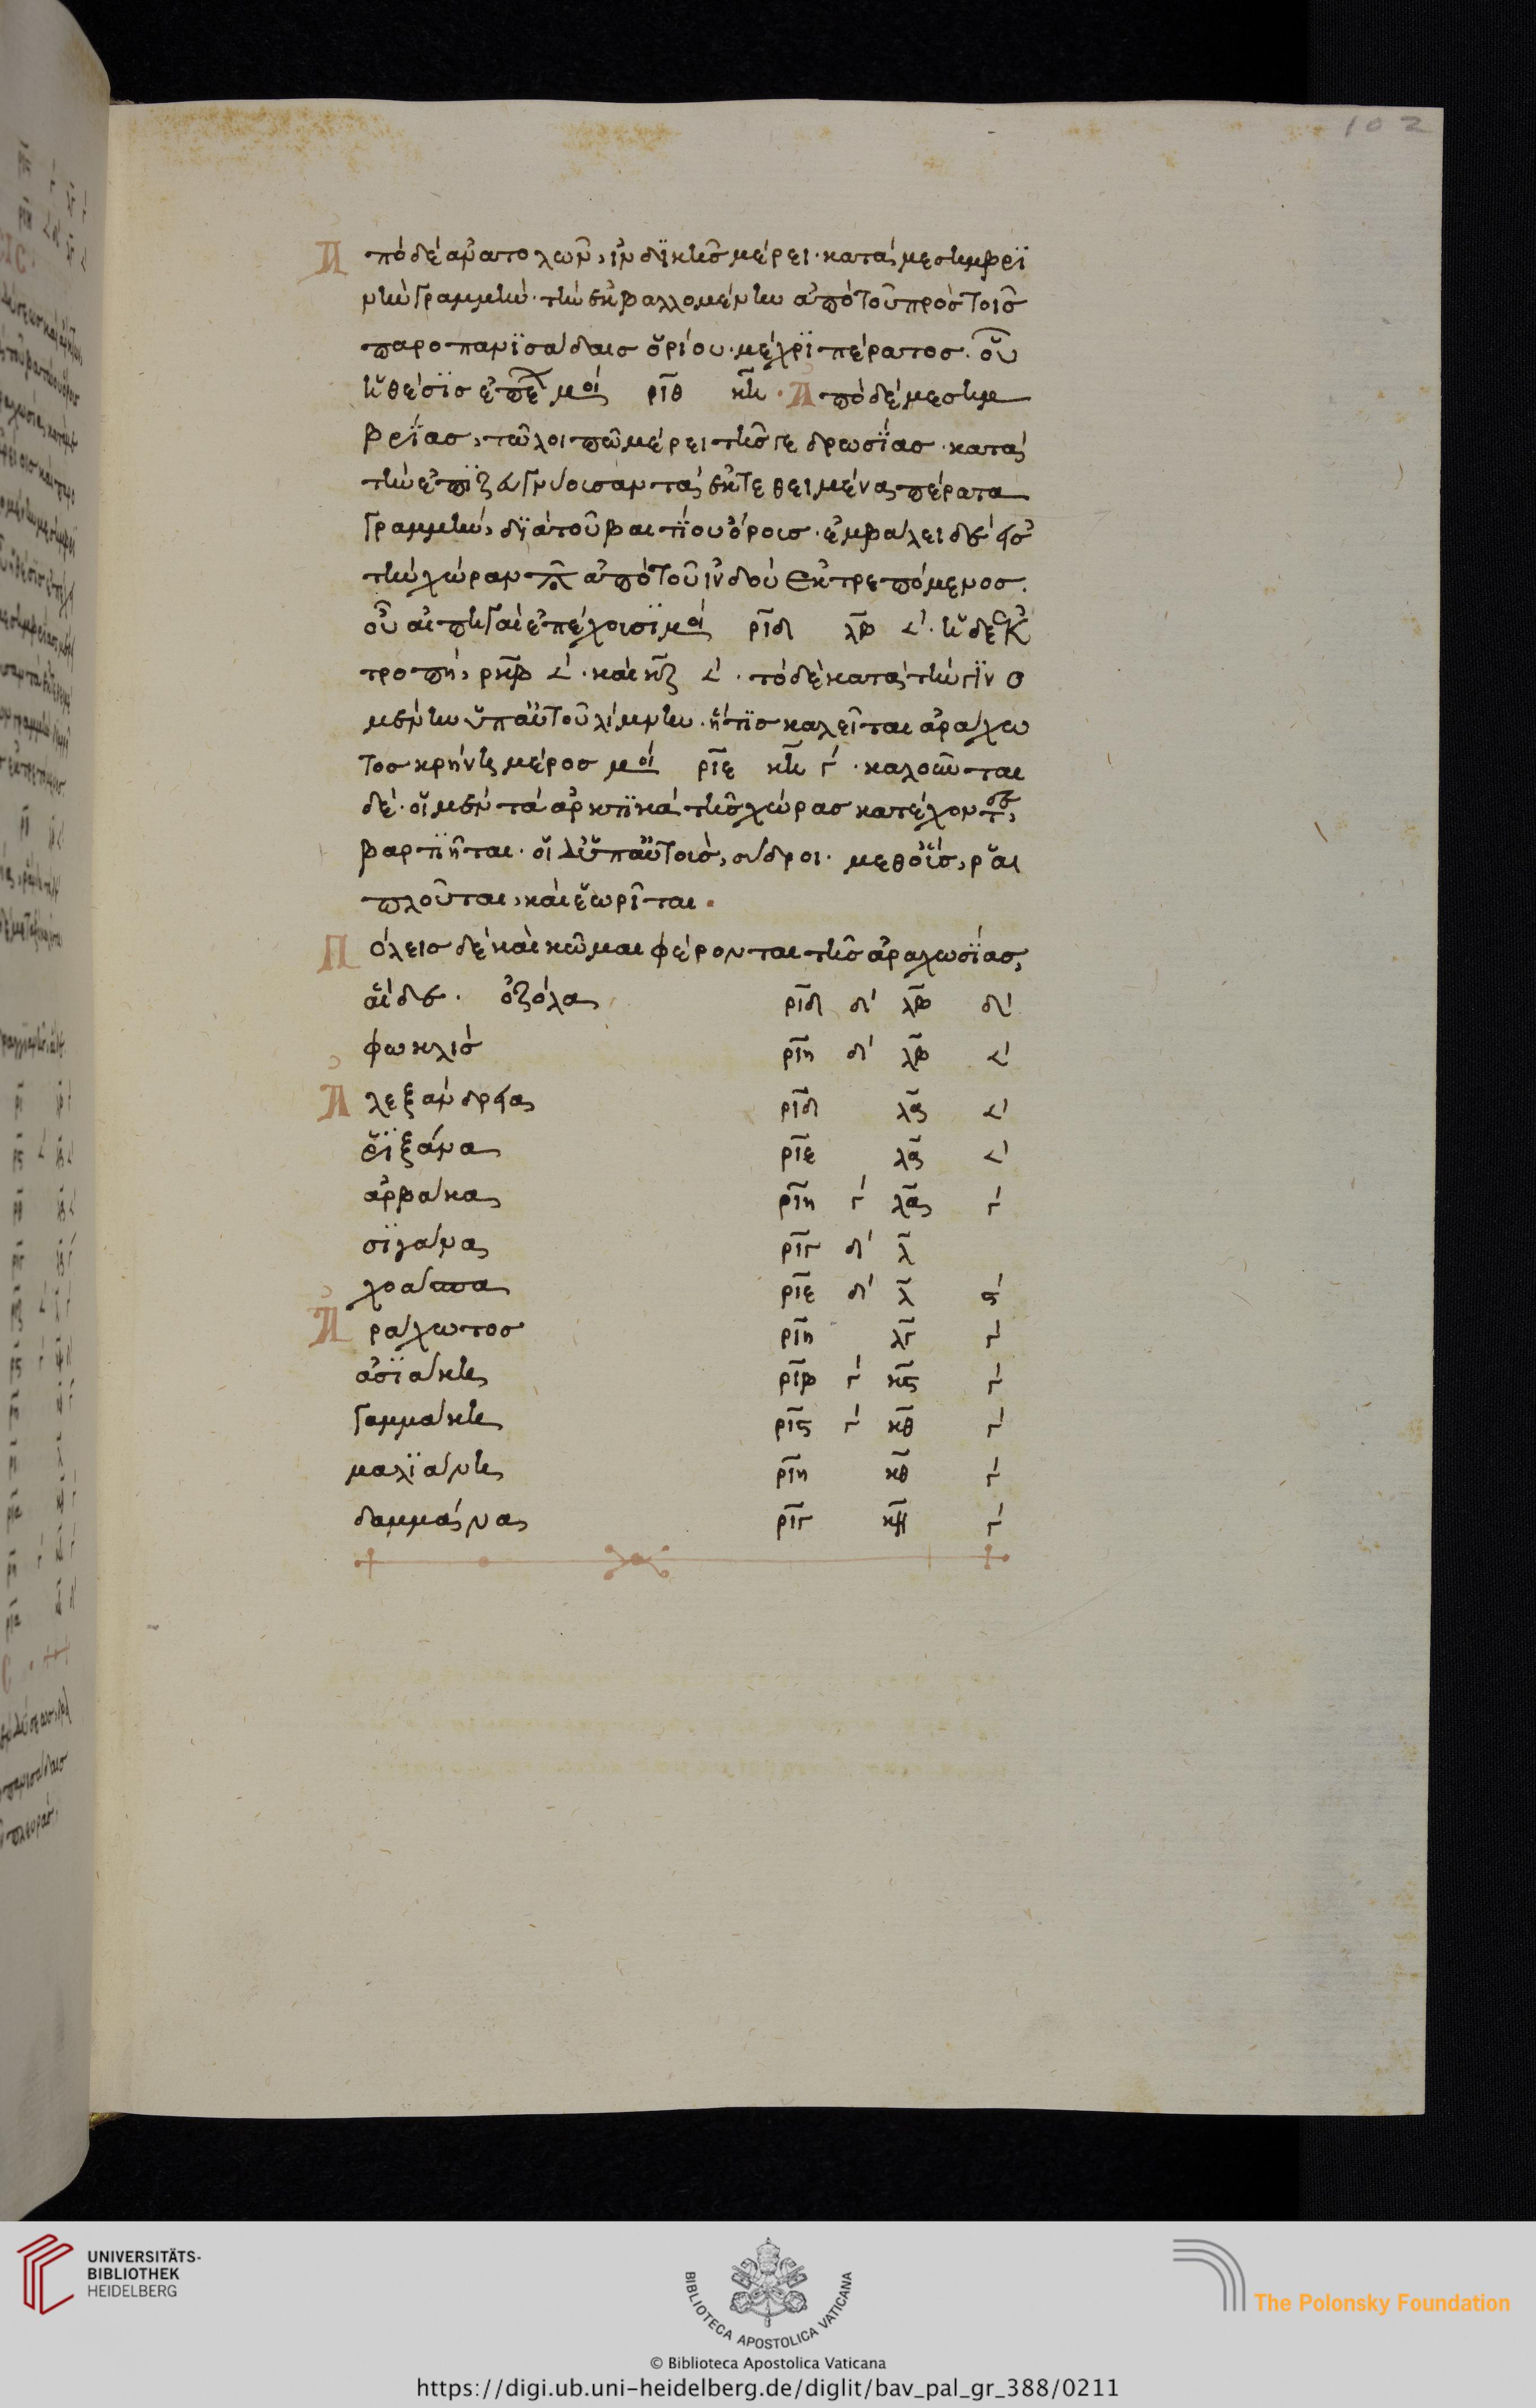 102
Ἀπὸ δὲ ἀνατολῶν, ἰνδϊκῆς μέρει· κατὰ μεσημβρϊ
νὴν γραμμὴν· τὴν ἐκβαλλομένην ἀπὸ τοῦ πρὸς τοῖς
παροπανϊσάδαις ὅρίου· μέχρϊ πέρατος· οὗ
ἡ θέσϊς ἐπέχ μοί ριθ κη · Ἀπὸ δὲ μεσημ
βρίας, τῶ λοιπῶ μέρει τῆς γεδρωσΐας· κατὰ
τὴν ἐπϊζευγνύουσαν τὰ ἐκτεθειμένα πέρατα
γραμμὴν, δϊὰ τοῦ βαιτϊου ὄρους· ἐμβάλει δὲ εἰς
τὴν χώραν ἀπὸ τοῦ ἰνδοῦ ἐκτρεπόμενος·
οὗ αἱ πηγαὶ ἐπέχουσϊ μοί ριδ λβ ∠· ἡ δὲ ἐκ
τροπή, ρκβ ∠· καὶ κζ ∠· τὸ δὲ κατὰ τὴν γϊνο
μένην ὑπ αὐτοῦ λίμνην· ἥτϊς καλεῖται ἀράχω
τος κρήνη μέρος μοί ριε κη γ· καλοῦνται
δὲ· οἱ μὲν τὰ ἀρκτϊκὰ τῆς χώρας κατέχοντες,
βαρτϊῆται· οἱ δ ὑπ αὐτοὺς, σύδροι· μεθ οἷς, ρὅαι
πλοῦται, καὶ ἐωρῖται·
Πόλεις δὲ καὶ κῶμαι φέρονται τῆς ἀραχωσΐας,
αἵδε· ὀζόλα ριδ δ λβ δ
φωκλὶς ριη δ λβ ∠
Ἀλεξάνδρεια ριδ λα ∠
ῥϊξάνα ριε λα ∠
ἀρβάκα ριη γ λα γ
σϊγάνα ριγ δ λ
χοάσπα ριε δ λ ϛ
Ἀράχωτος ριη λγ γ
ἀσϊάκη ριβ γ κϛ γ
γαμμάκη ριϛ γ κθ γ
μαλϊάνη ριη κθ γ
δαμμάνα ριγ κη γ
UNIVERSITÄTS-
BIBLIOTHEK
HEIDELBERG
BIBLIOTECA APOSTOLICA VATICANA
© Biblioteca Apostolica Vaticana
The Polonsky Foundation
https://digi.ub.uni-heidelberg.de/diglit/bav_pal_gr_388/0211